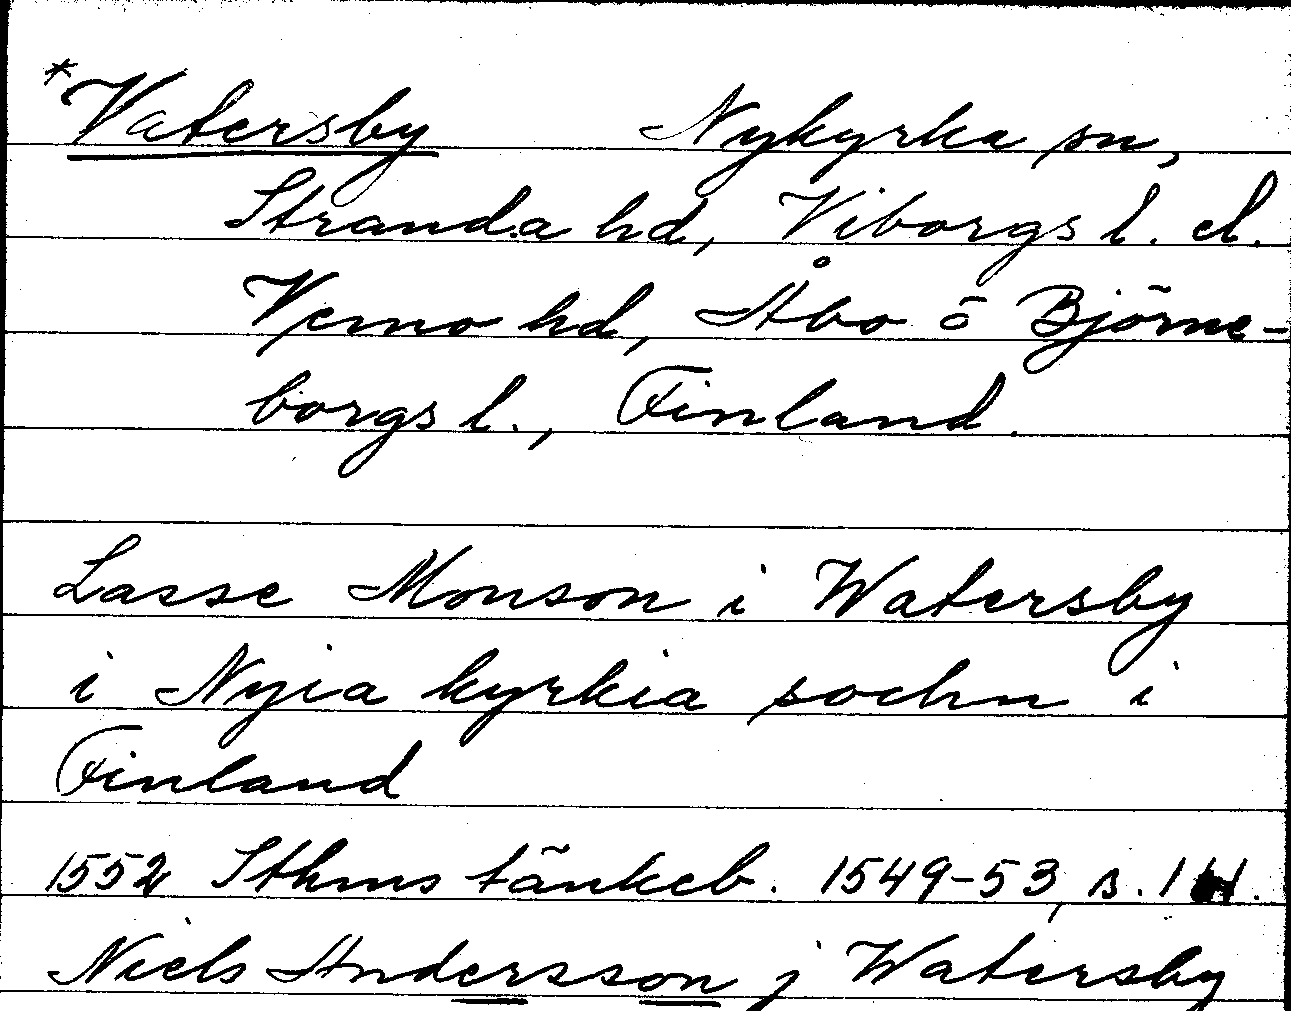 *Vatersby Nykyrka sn,
Stranda hd, Viborgs l. el.
Vemo hd, Åbo o Björne-
borgs l., Finland.
Lasse Monson i Watersby
i Nyia kyrkia sochn i
Finland
1552 Sthms tänkeb. 1549-53, s.
Niels Andersson j Watersby